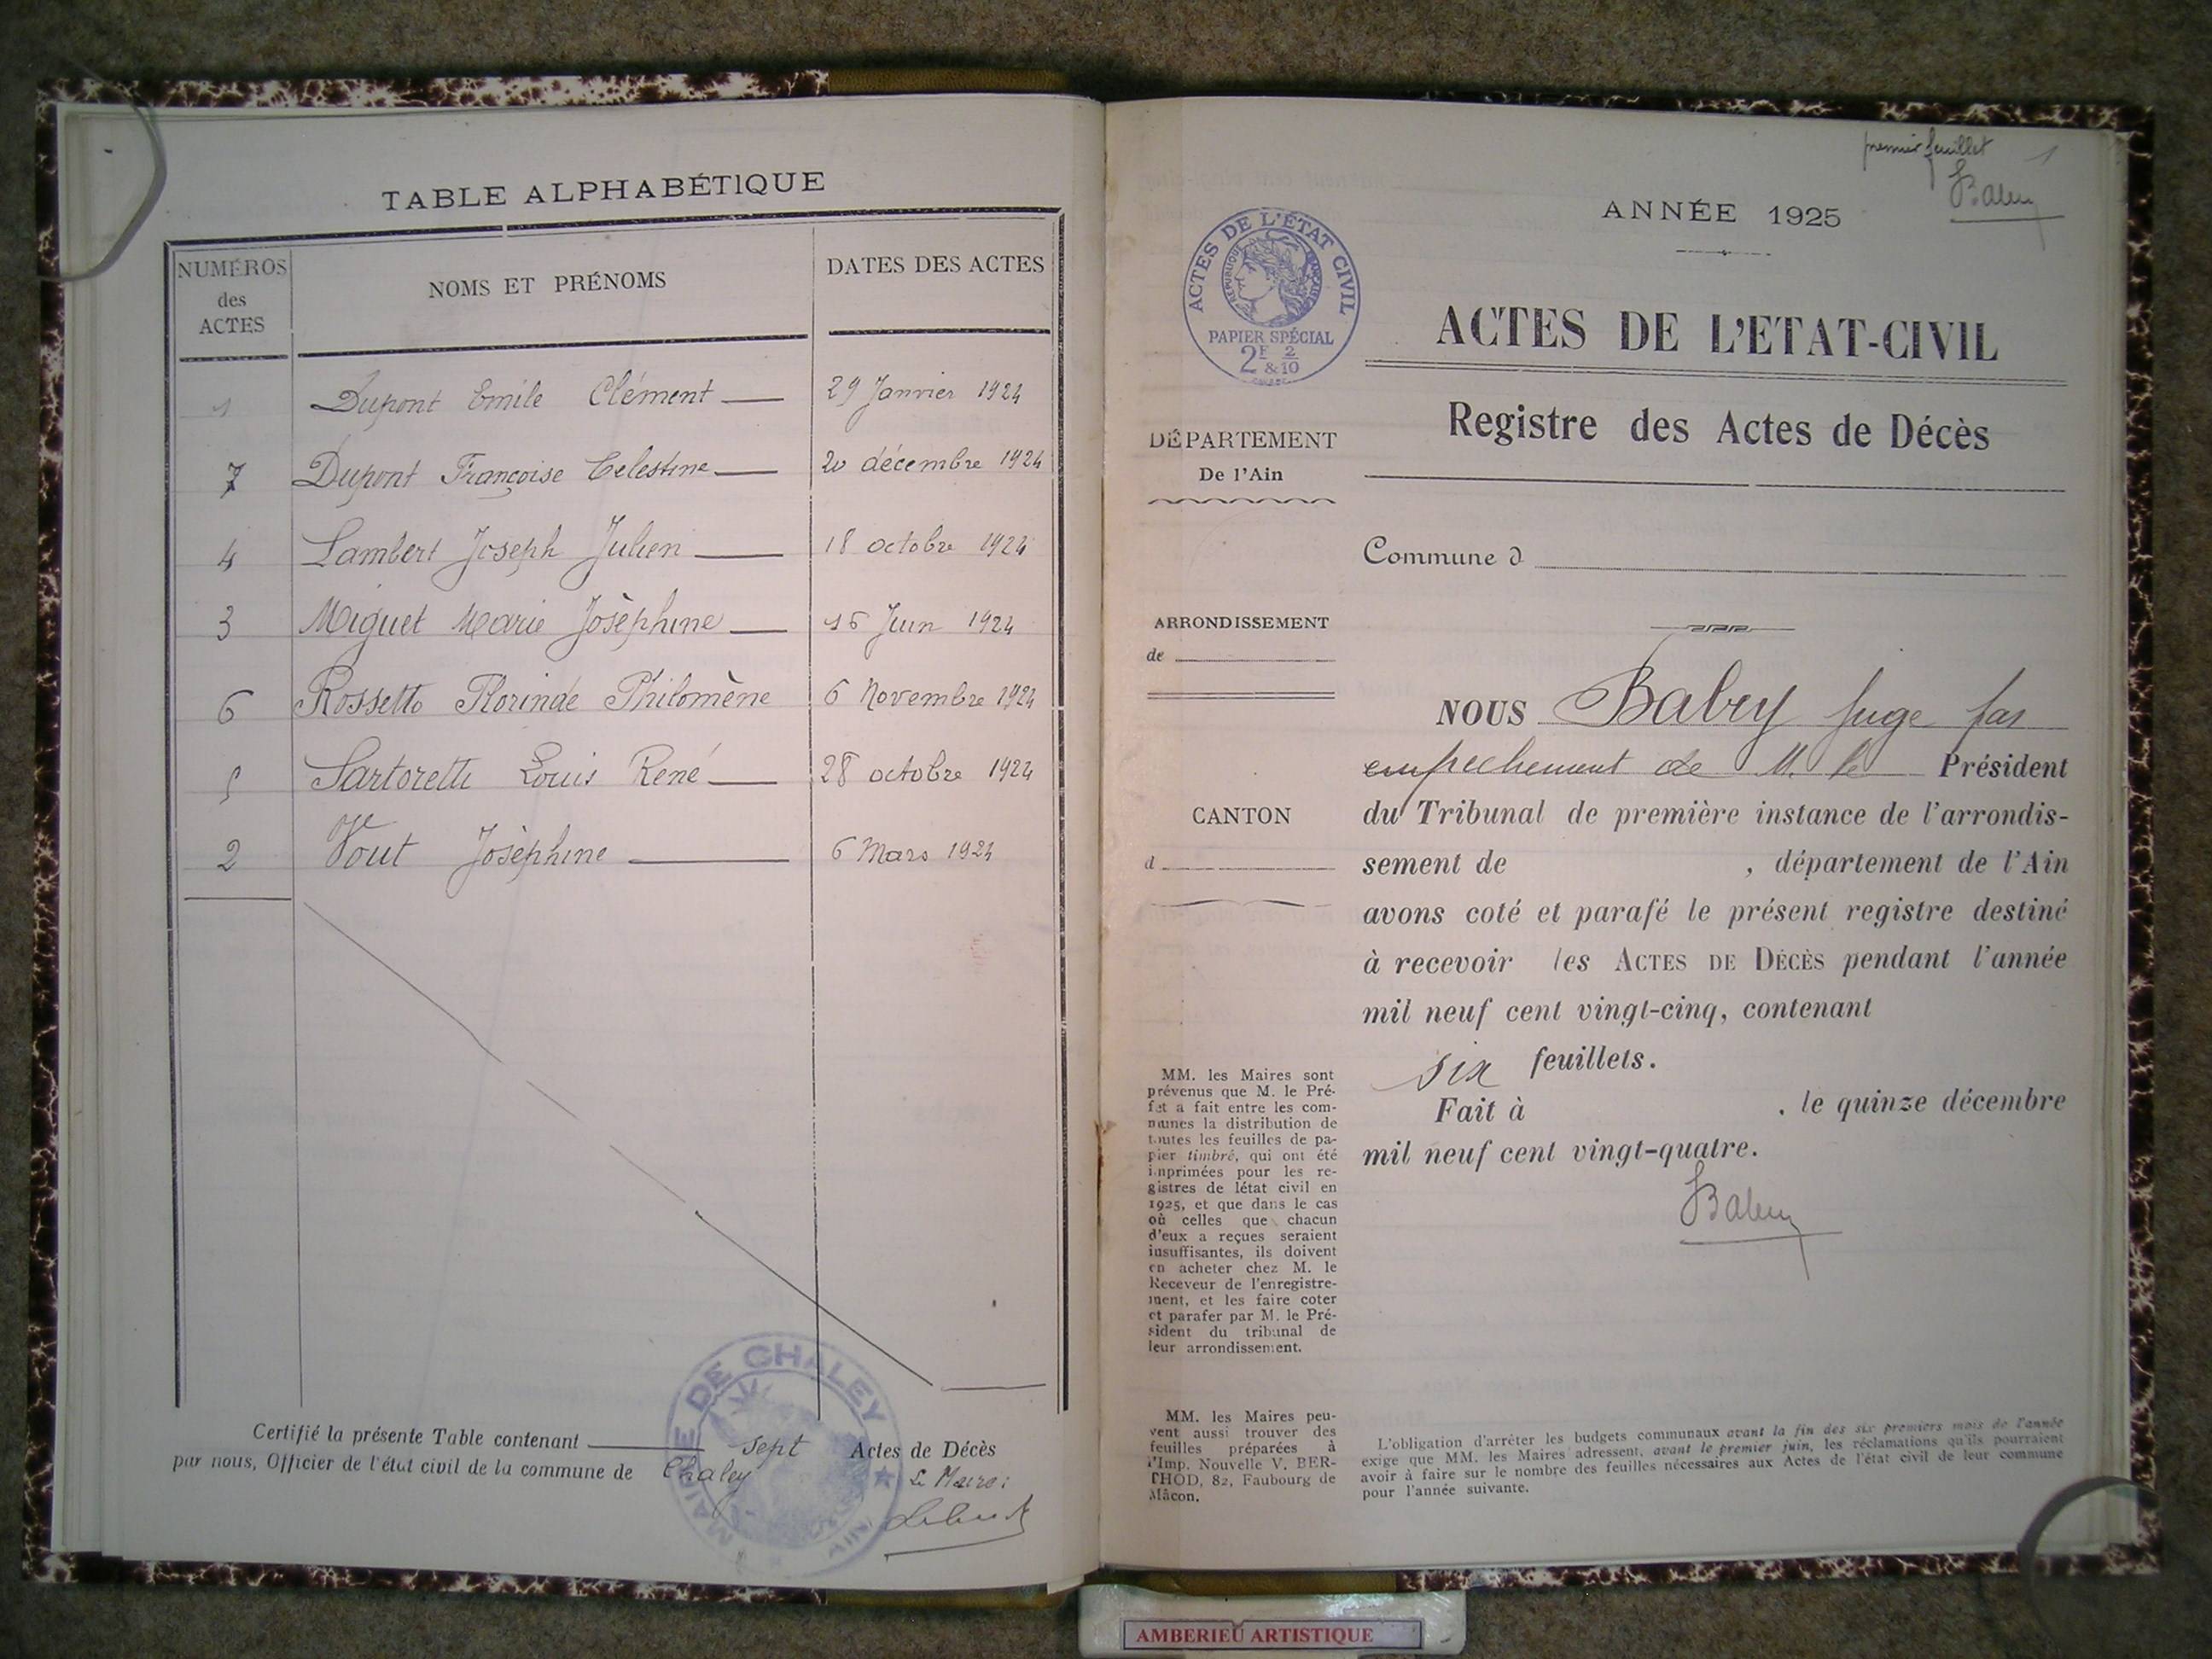 TABLE ALPHABÉTIQUE
NUMÉROS
des
ACTES
NOMS ET PRÉNOMS
DATES DES ACTES
1 Dupont Emile Clément 29 Janvier 1924
7 Dupont Françoise Celestine 20 décembre 1924
4 Lambert Joseph Julien 18 octobre 1924
3 Miguet Marie Josèphine 16 Juin 1924
6 Rossetto Florinde Philomène 6 Novembre 1924
5 Sartoretti Louis René 28 octobre 1924
2 Vout Josèphine 6 Mars 1924
Certifié la présente Table contenant sept Actes de Décès
par nous, Officier de l'état civil de la commune de Chaley
Le Maire:
MAIRIE DE CHALEY
AIN
premier feuillet 1
Babey
ANNÉE 1925
ACTES DE L'ÉTAT CIVIL
RÉPUBLIQUE FRANÇAISE
PAPIER SPÉCIAL
2F 2
&10
ACTES DE L'ETAT-CIVIL
Registre des Actes de Décès
DÉPARTEMENT
De l'Ain
Commune d
ARRONDISSEMENT
de
CANTON
d
NOUS Babey juge par
empechement de M. le Président
du Tribunal de première instance de l'arrondis-
sement de , département de l'Ain
avons coté et parafé le présent registre destiné
à recevoir les ACTES DE DÉCÈS pendant l'année
mil neuf cent vingt-cinq, contenant
six feuillets.
Fait à , le quinze décembre
mil neuf cent vingt-quatre.
Babey
MM. les Maires sont
prévenus que M. le Pré-
fet a fait entre les com-
munes la distribution de
toutes les feuilles de pa-
pier timbré, qui ont été
imprimées pour les re-
gistres de létat civil en
1925, et que dans le cas
où celles que chacun
d'eux a reçues seraient
insuffisantes, ils doivent
en acheter chez M. le
Receveur de l'enregistre-
ment, et les faire coter
et parafer par M. le Pré-
sident du tribunal de
leur arrondissement.
MM. les Maires peu-
vent aussi trouver des
feuilles préparées à
l'Imp. Nouvelle V. BER-
THOD, 82, Faubourg de
Mâcon.
L'obligation d'arrêter les budgets communaux avant la fin des six premiers mois de l'année
exige que MM. les Maires adressent, avant le premier juin, les réclamations qu'ils pourraient
avoir à faire sur le nombre des feuilles nécessaires aux Actes de l'état civil de leur commune
pour l'année suivante.
AMBERIEU ARTISTIQUE